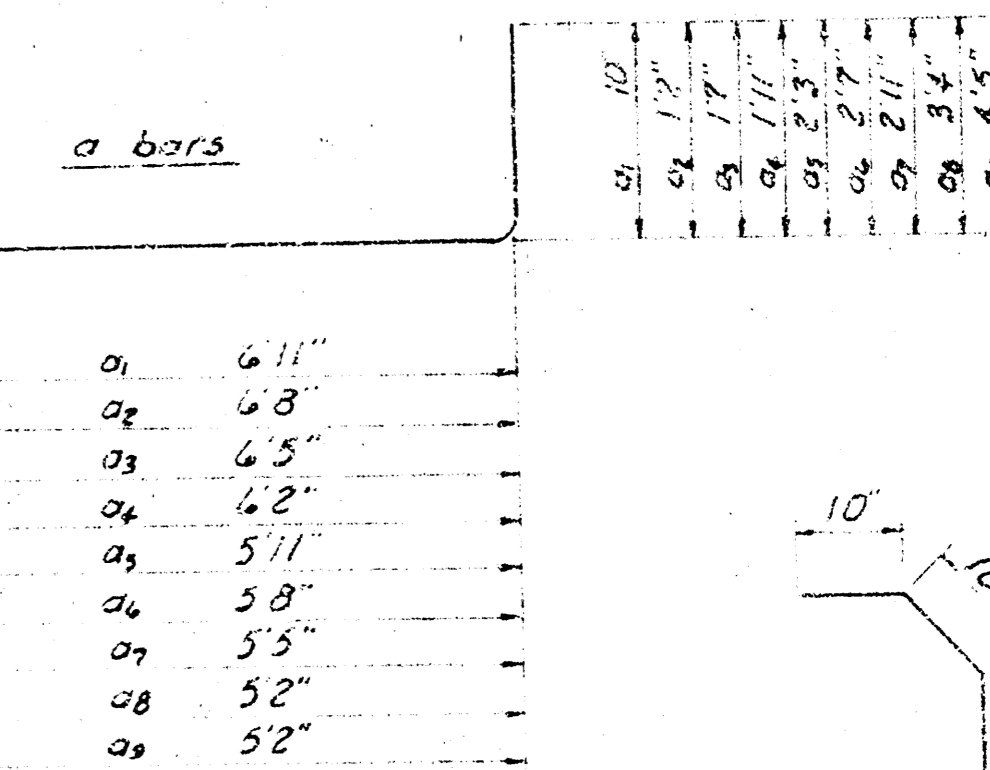 a bars
a1 10"
a2 1'2"
a3 1'7"
a4 1'11"
a5 2'3"
a6 2'7"
a7 2'11"
a8 3'4"
4'5"
a1 6'11"
a2 6'8"
a3 6'5"
a4 6'2"
a5 5'11"
a6 5'8"
a7 5'5"
a8 5'2"
a9 5'2"
10"